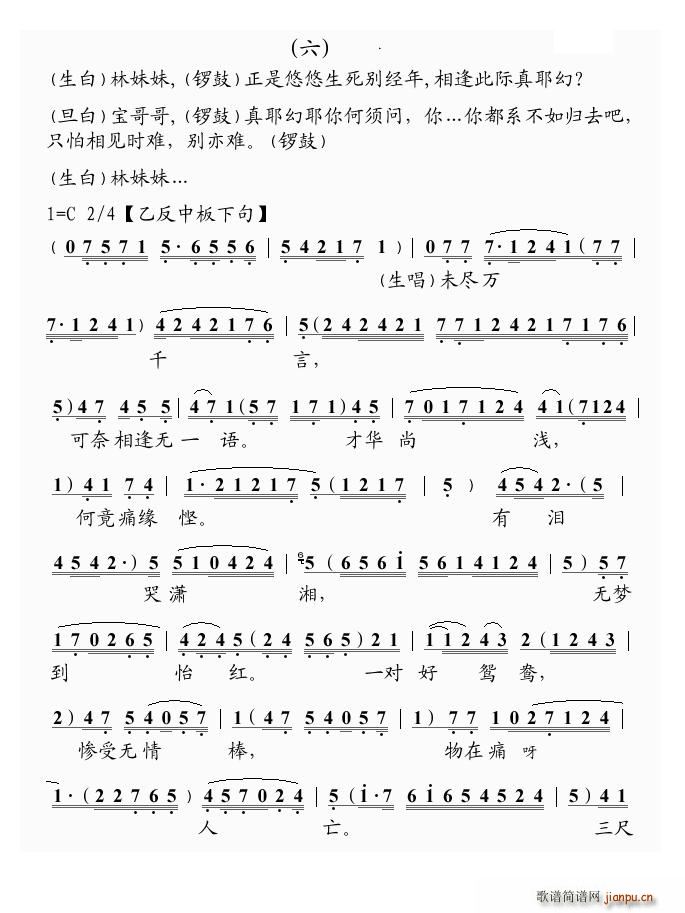 (六)
(生白)林妹妹,(锣鼓)正是悠悠生死别经年,相逢此际真耶幻?
(旦白)宝哥哥,(锣鼓)真耶幻耶你何须问，你…你都系不如归去吧，
只怕相见时难，别亦难。(锣鼓)
(生白)林妹妹…
1=C 2/4【乙反中板下句】
(07571 5·6556 | 54217 1) | 077 7·1241(77 |
(生唱)未尽万
7·1241) 4242176 | 5(242421 77124217176 |
千 言，
5)47 45 5 | 471(57 171)45 | 7017124 41(7124
可奈相逢无一语。 才华尚 浅，
1)41 74 | 1·21217 5(1217 | 5) 4542·(5 |
何竟痛缘悭。 有 泪
4542·)5 510424 | 65(6561 5614124 | 5)57
哭潇 湘， 无梦
170265 | 4245(24 565)21 | 11243 2(1243 |
到 怡红。 一对好 鸳鸯，
2)47 54057 | 1(47 54057 | 1)77 1027124
惨受无情 棒， 物在痛呀
1·(22765) 457024 | 5(1·7 61654524 | 5)41
人 亡。 三尺
歌谱简谱网 jianpu.cn